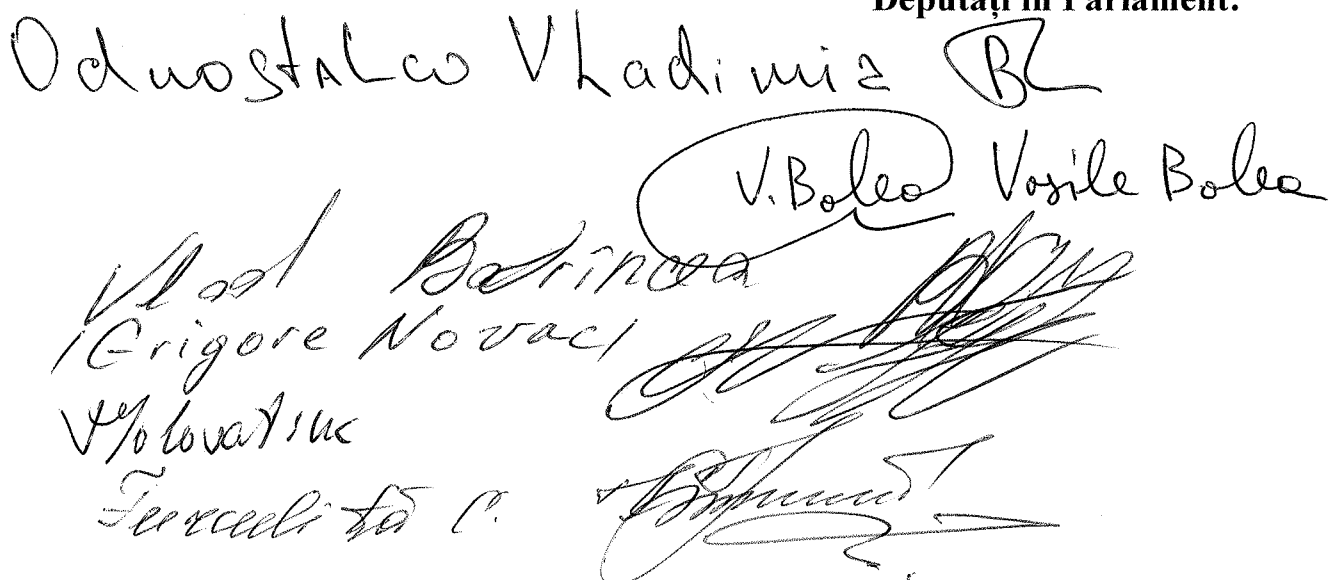 Deputați în Parlament:
Odnostalco Vladimir
V. Bolea Vasile Bolea
Vlad Batrîncea
Grigore Novac
V Golovatiuc
Furculiță C.